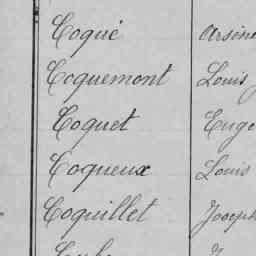 Coqué Arsène
Coquemont Louis
Coquet Euge
Coqueux Louis
Coquillet Joseph